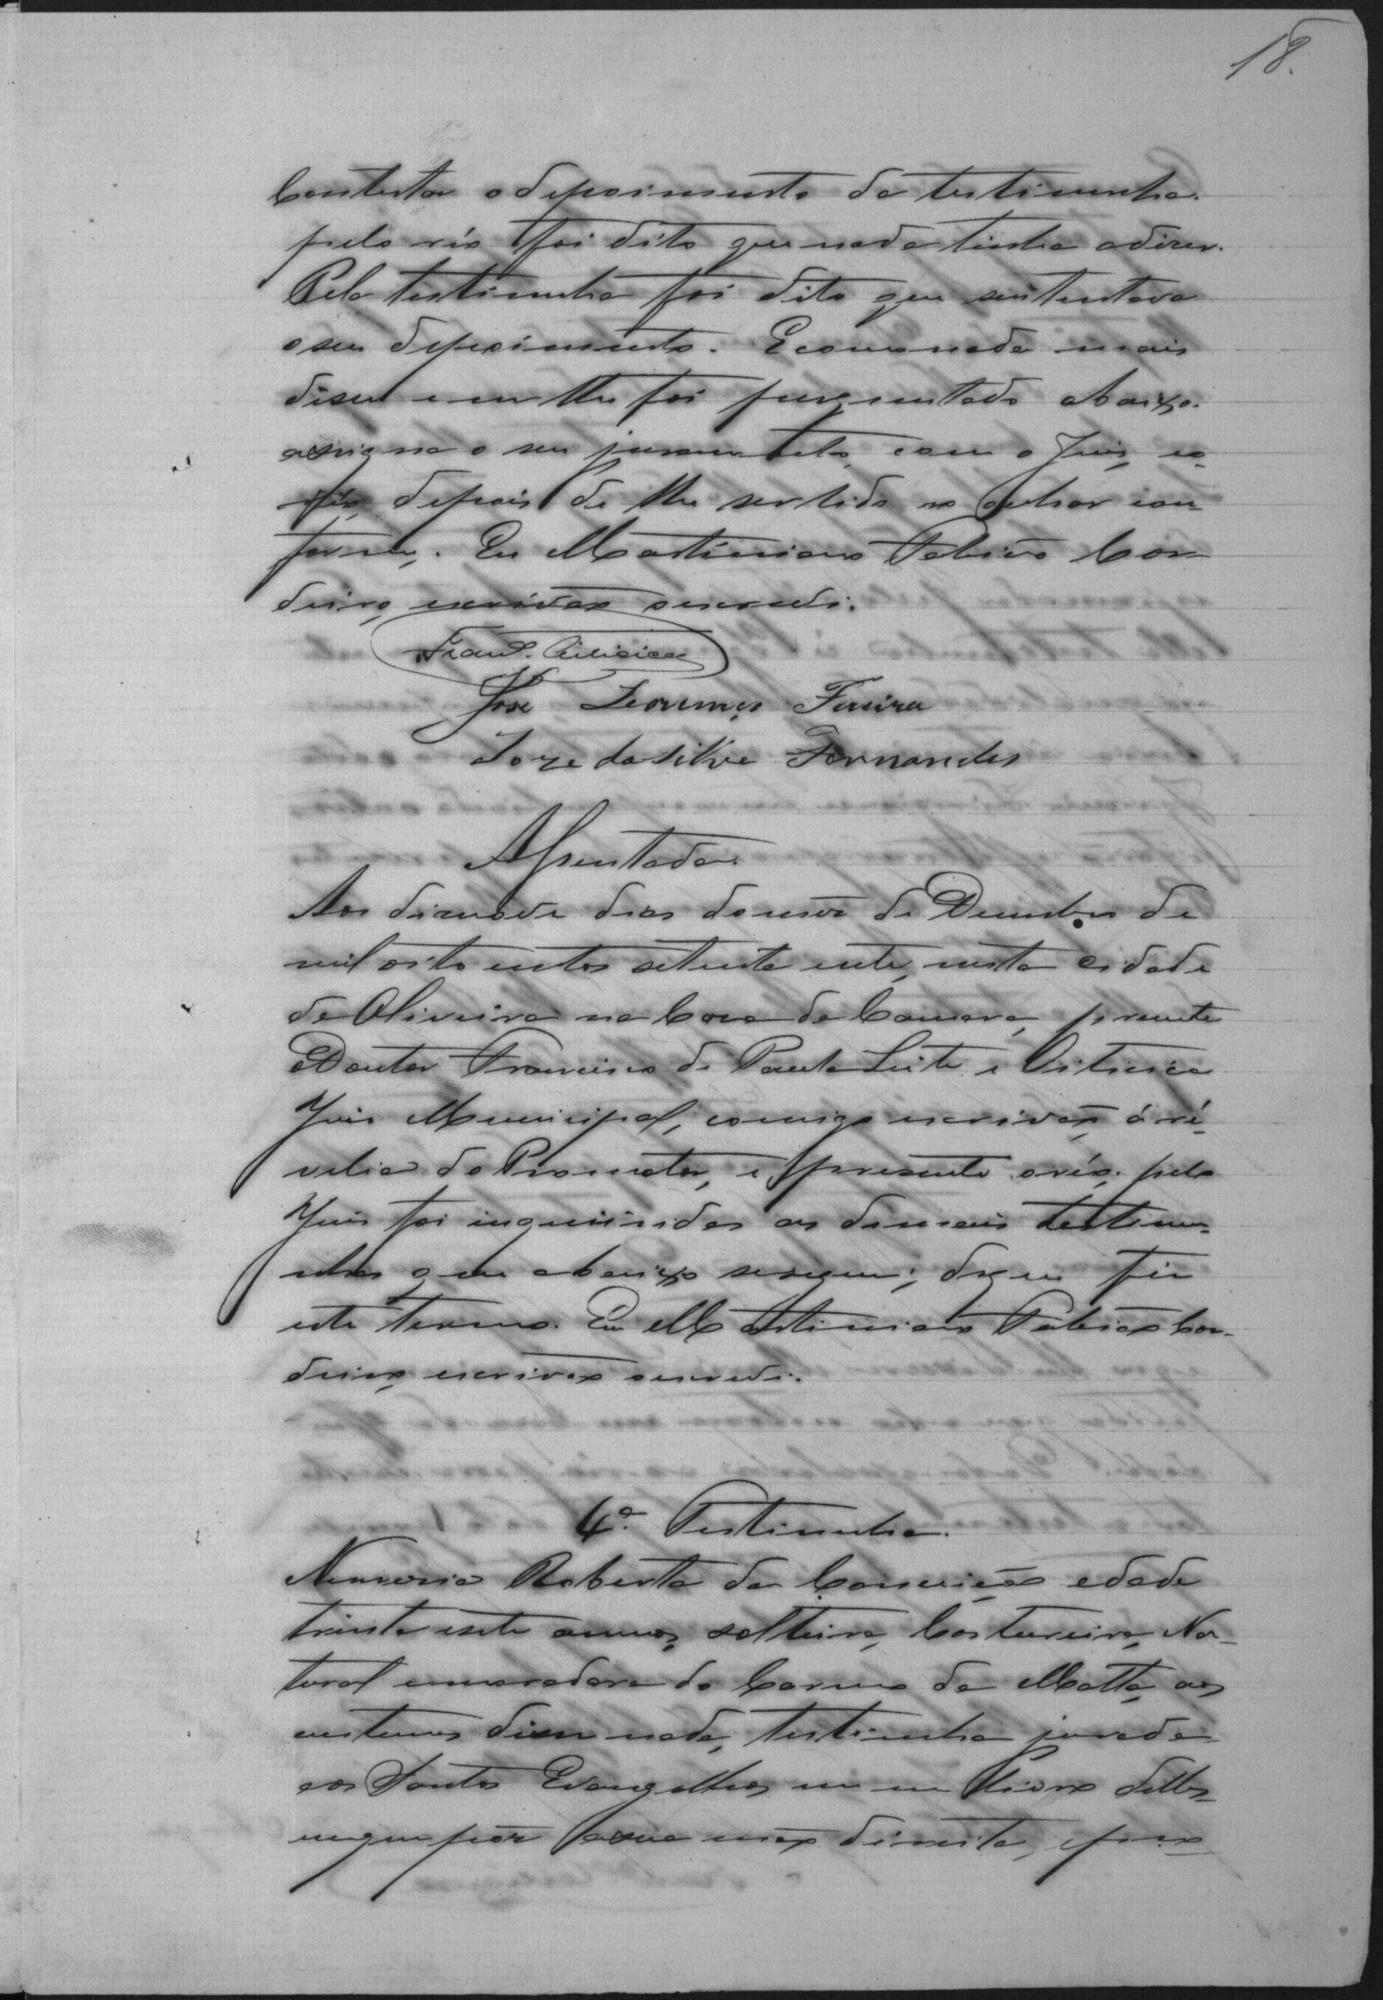 18.
Contestar o depoimento da testimunha.
pelo réo foi dito que nada tinha adizer.
Pela testimunha foi dito que sustentava
o seu depoimento. E como nada mais
disse e nem lhe foi preguntado abaixo
assigna o seu juramento, com o Juis, eo
réo, depois de lhe ser lido eo achar con-
forme. Eu Martiniano Patricio Cor-
deiro, escrivão oescrevi.
Franco. Citicica
Jose Lourenço Fereira
Joze da Silva Fernandes
Assentada.
Aos disnove dias domês de Desembro de
mil oito centos setenta esete, nesta cidade
de Oliveira na Casa da Camara, presente
Doutor Francisco de Paula Leite e Oiticica
Juis Municipal, comigo escrivão, á ré-
velia do Promotor, e presente oréo; pelo
Juis foi inquirido as demais testimu-
nhas que abaixo seseguem; doque fis
este termo. Eu Martiniano Patricio Cor-
deiro, escrivão oescrevi.
4ª. Testimunha.
Roberta da Conceição edade
trinta esete annos, solteira, Costureira, Na-
tural emoradora do Carmo da Matta, aos
custumes disse nada, testimunha jurada
aos Santos Evangelhos em um Livro delles
emque pôs asua mão direita, e pro